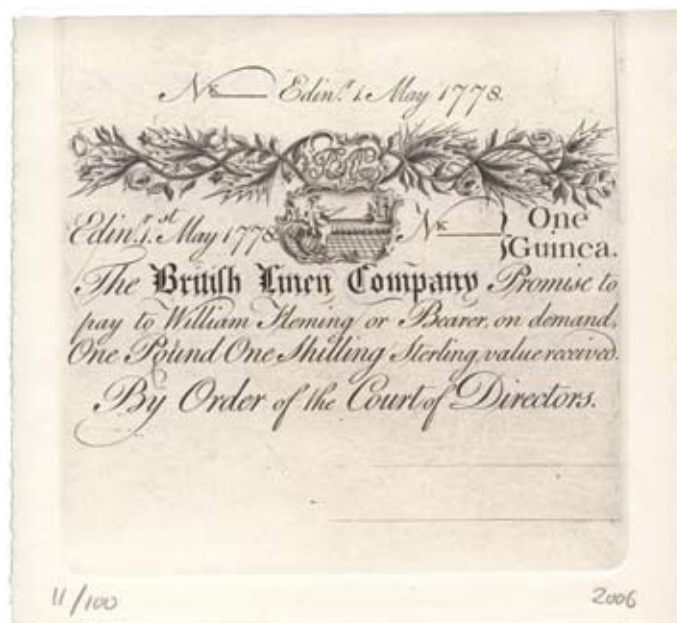 No. Edinr. 1. May 1778.
Edinr. 1st May 1778 No. One
Guinea.
The British Linen Company Promise to
pay to William Fleming or Bearer, on demand,
One Pound One Shilling Sterling, value received.
By Order of the Court of Directors.
11/100 2006